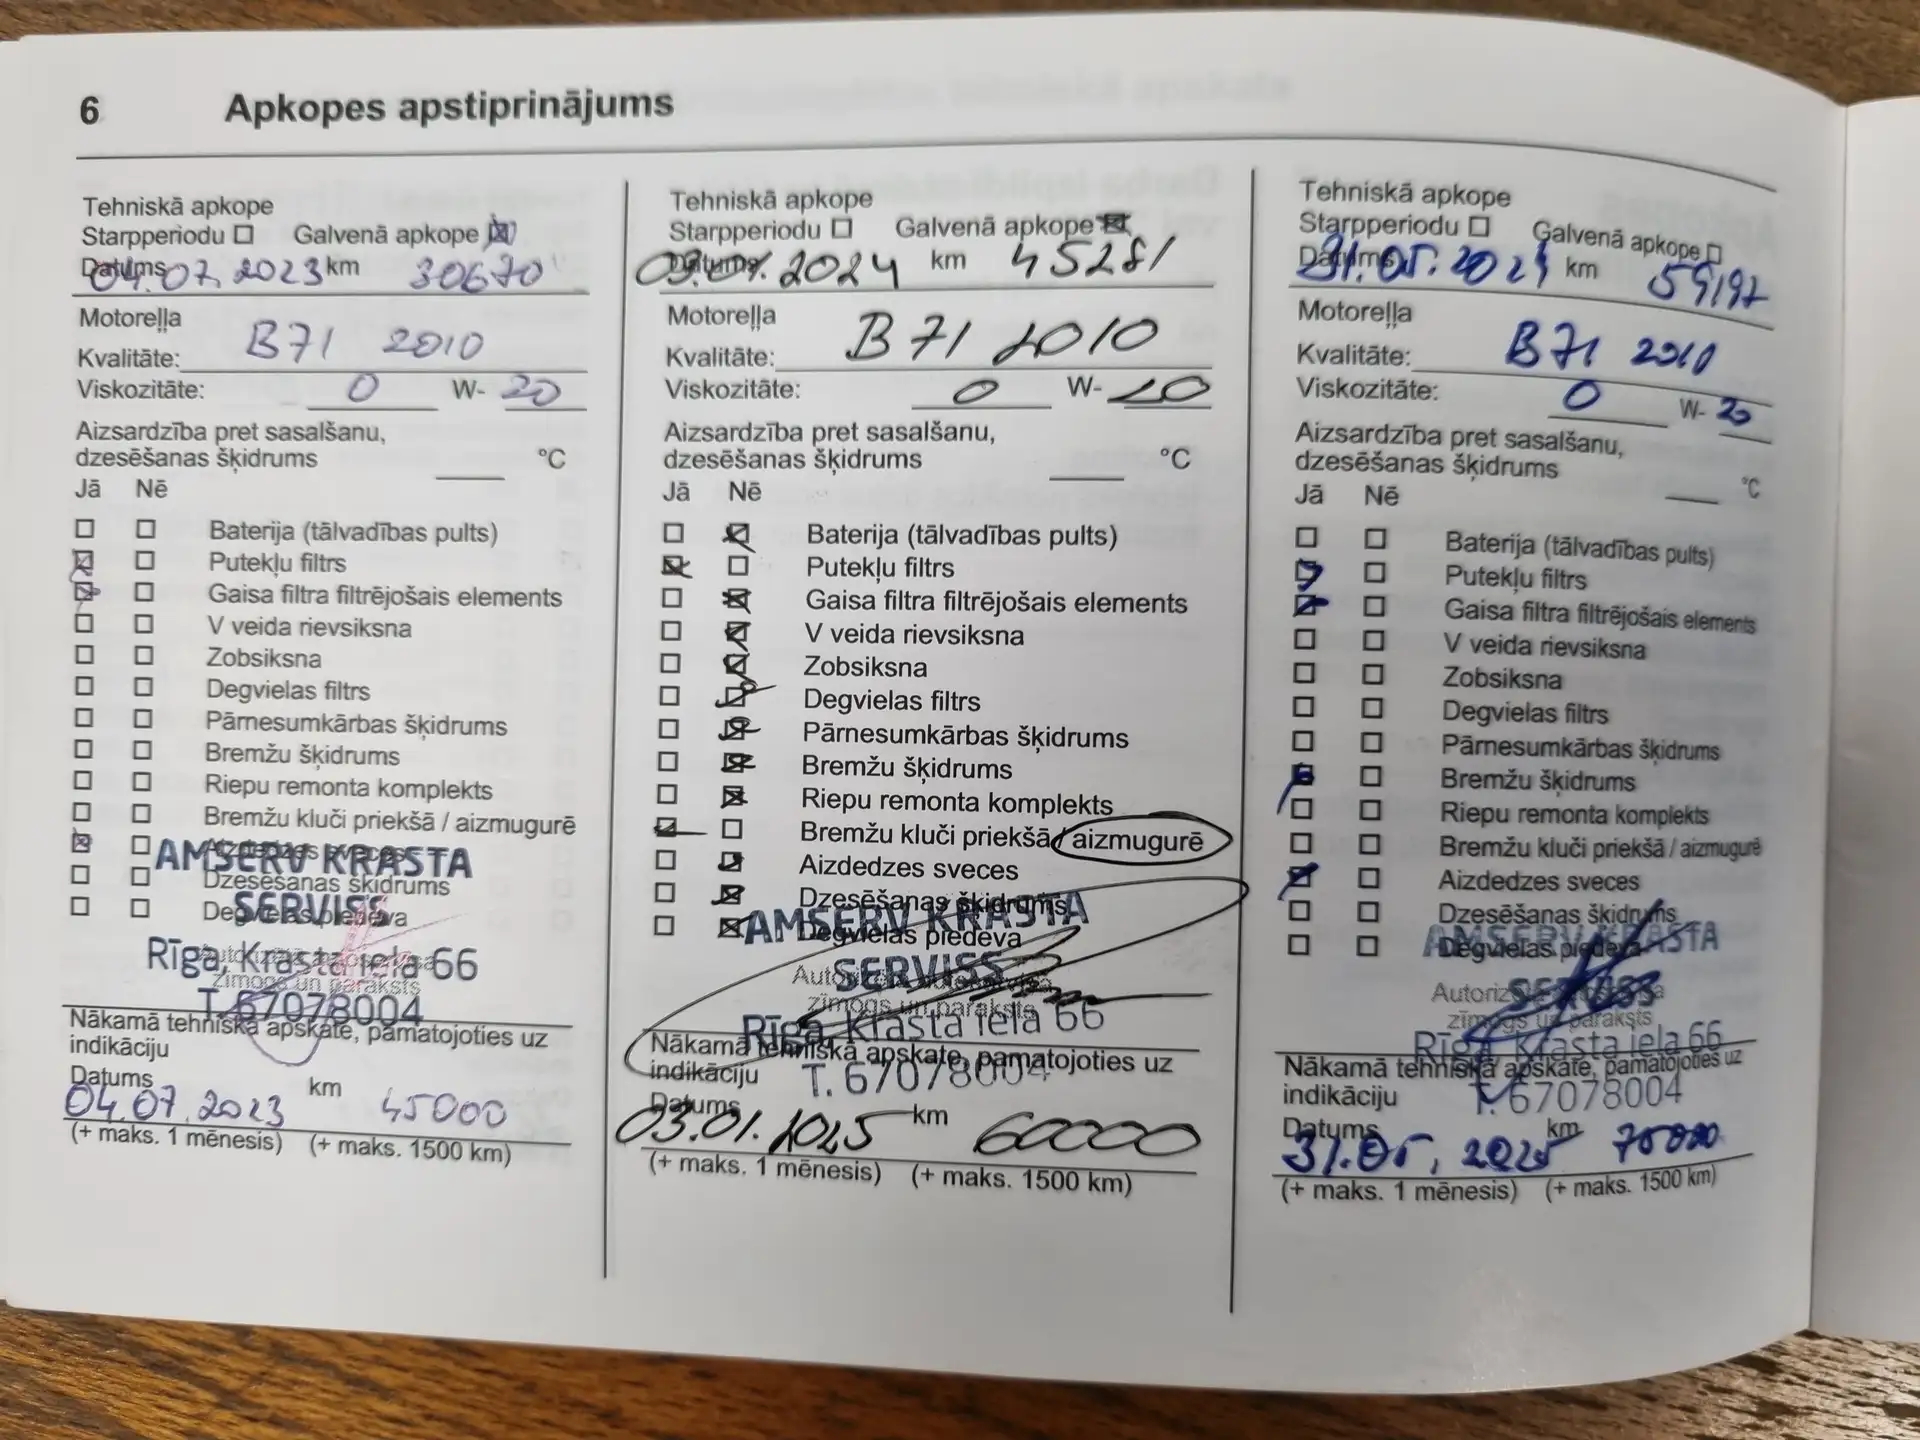 6 Apkopes apstiprinājums
Tehniskā apkope
Starpperiodu Galvenā apkope
Datums 04.07.2023 km 30670
Motoreļļa
Kvalitāte: B71 2010
Viskozitāte: 0 W- 20
Aizsardzība pret sasalšanu,
dzesēšanas šķidrums °C
Jā Nē
Baterija (tālvadības pults)
Putekļu filtrs
Gaisa filtra filtrējošais elements
V veida rievsiksna
Zobsiksna
Degvielas filtrs
Pārnesumkārbas šķidrums
Bremžu šķidrums
Riepu remonta komplekts
Bremžu kluči priekšā / aizmugurē
Aizdedzes sveces
AMSERV KRASTA
Dzesēšanas šķidrums
SERVISS
Degvielas piedeva
Rīga, Krasta iela 66
zīmogs un paraksts
T. 67078004
Nākamā tehniskā apskate, pamatojoties uz
indikāciju
Datums km
04.07.2023 45000
(+ maks. 1 mēnesis) (+ maks. 1500 km)
Tehniskā apkope
Starpperiodu Galvenā apkope
Datums 03.01.2024 km 45281
Motoreļļa
Kvalitāte: B71 2010
Viskozitāte: 0 W- 20
Aizsardzība pret sasalšanu,
dzesēšanas šķidrums °C
Jā Nē
Baterija (tālvadības pults)
Putekļu filtrs
Gaisa filtra filtrējošais elements
V veida rievsiksna
Zobsiksna
Degvielas filtrs
Pārnesumkārbas šķidrums
Bremžu šķidrums
Riepu remonta komplekts
Bremžu kluči priekšā / aizmugurē
Aizdedzes sveces
Dzesēšanas šķidrums
AMSERV KRASTA
Degvielas piedeva
SERVISS
zīmogs un paraksts
Rīga, Krasta iela 66
Nākamā tehniskā apskate, pamatojoties uz
indikāciju T. 67078004
Datums km
03.01.2025 60000
(+ maks. 1 mēnesis) (+ maks. 1500 km)
Tehniskā apkope
Starpperiodu Galvenā apkope
Datums 31.05.2024 km 59197
Motoreļļa
Kvalitāte: B71 2010
Viskozitāte: 0 W- 20
Aizsardzība pret sasalšanu,
dzesēšanas šķidrums °C
Jā Nē
Baterija (tālvadības pults)
Putekļu filtrs
Gaisa filtra filtrējošais elements
V veida rievsiksna
Zobsiksna
Degvielas filtrs
Pārnesumkārbas šķidrums
Bremžu šķidrums
Riepu remonta komplekts
Bremžu kluči priekšā / aizmugurē
Aizdedzes sveces
Dzesēšanas šķidrums
AMSERV KRASTA
Degvielas piedeva
SERVISS
zīmogs un paraksts
Rīga, Krasta iela 66
Nākamā tehniskā apskate, pamatojoties uz
indikāciju T. 67078004
Datums km
31.05.2025 75000
(+ maks. 1 mēnesis) (+ maks. 1500 km)